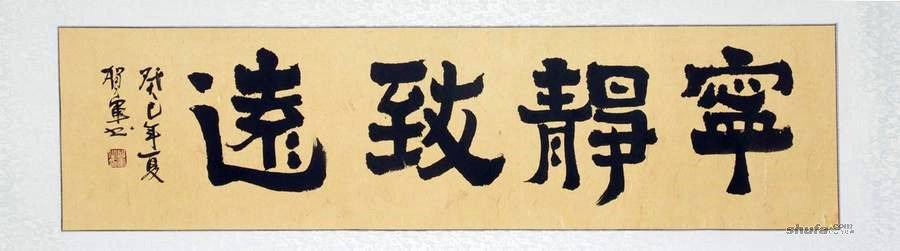 寧靜致遠
癸巳年夏
軍书
shufa.com